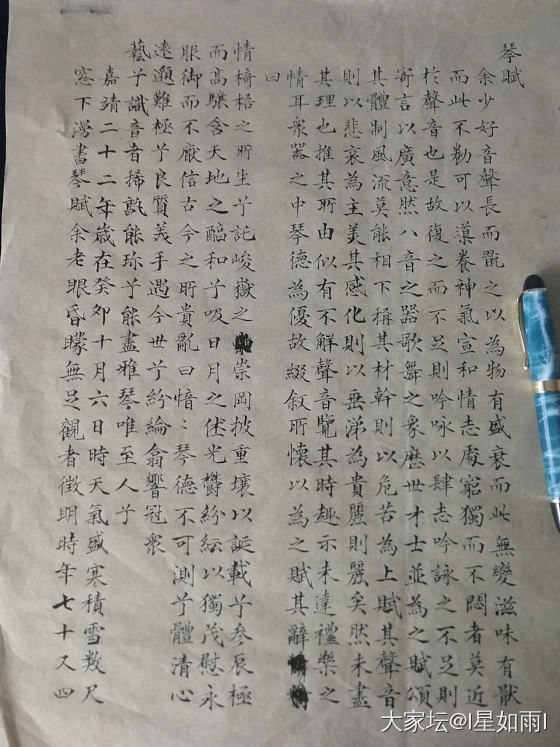 琴賦
余少好音聲長而翫之以為物有盛衰而此無變滋味有猒
而此不勌可以導養神氣宣和情志處窮獨而不悶者莫近
於聲音也是故復之而不足則吟咏以肆志吟詠之不足則
寄言以廣意然八音之器歌舞之象歷世才士並為之賦頌
其體制風流莫能相下稱其材幹則以危苦為上賦其聲音
則以悲哀為主美其感化則以垂涕為貴麗則麗矣然未盡
其理也推其所由似有不解聲音覽其時趣示未達禮樂之
情耳衆器之中琴德為優故綴敘所懷以為之賦其辭
曰
情椅梧之所生兮託峻嶽之崇岡披重壤以誕載兮參辰極
而高驤含天地之醞和兮吸日月之休光欝紛紜以獨茂慰永
服御而不厭信古今之所貴亂曰愔〻琴德不可測兮體清心
遠邈難極兮良質美手遇今世兮紛綸翕響冠衆
藝兮識音者希孰能珍兮能盡雅琴唯至人兮
嘉靖二十二年歲在癸卯十月六日時天氣盛寒積雪數尺
窓下漫書琴賦余老眼昏矇無足觀者徵明時年七十又四
大家坛@I星如雨I